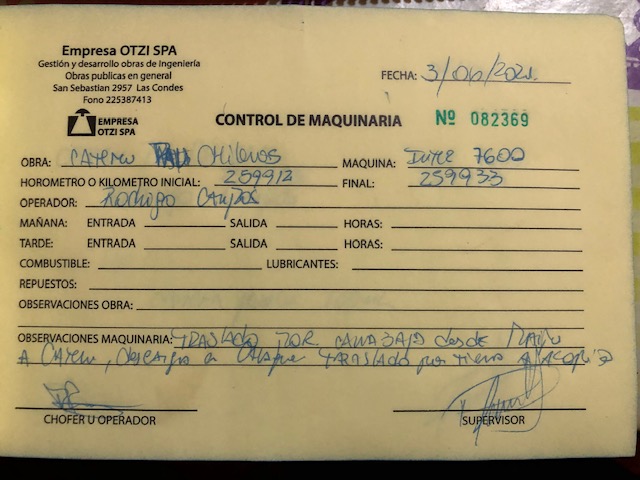 Empresa OTZI SPA
Gestión y desarrollo obras de Ingeniería
Obras publicas en general
San Sebastian 2957 / Las Condes
Fono 225387413
EMPRESA
OTZI SPA
CONTROL DE MAQUINARIA
FECHA: 3/06/2021
Nº 082369
OBRA: Chilenos MAQUINA: 7600
HOROMETRO O KILOMETRO INICIAL: 259912 FINAL: 259933
OPERADOR: Rodrigo
MAÑANA: ENTRADA SALIDA HORAS:
TARDE: ENTRADA SALIDA HORAS:
COMBUSTIBLE: LUBRICANTES:
REPUESTOS:
OBSERVACIONES OBRA:
OBSERVACIONES MAQUINARIA: TRASLADO desde
A TRASLADO por
CHOFER U OPERADOR
SUPERVISOR